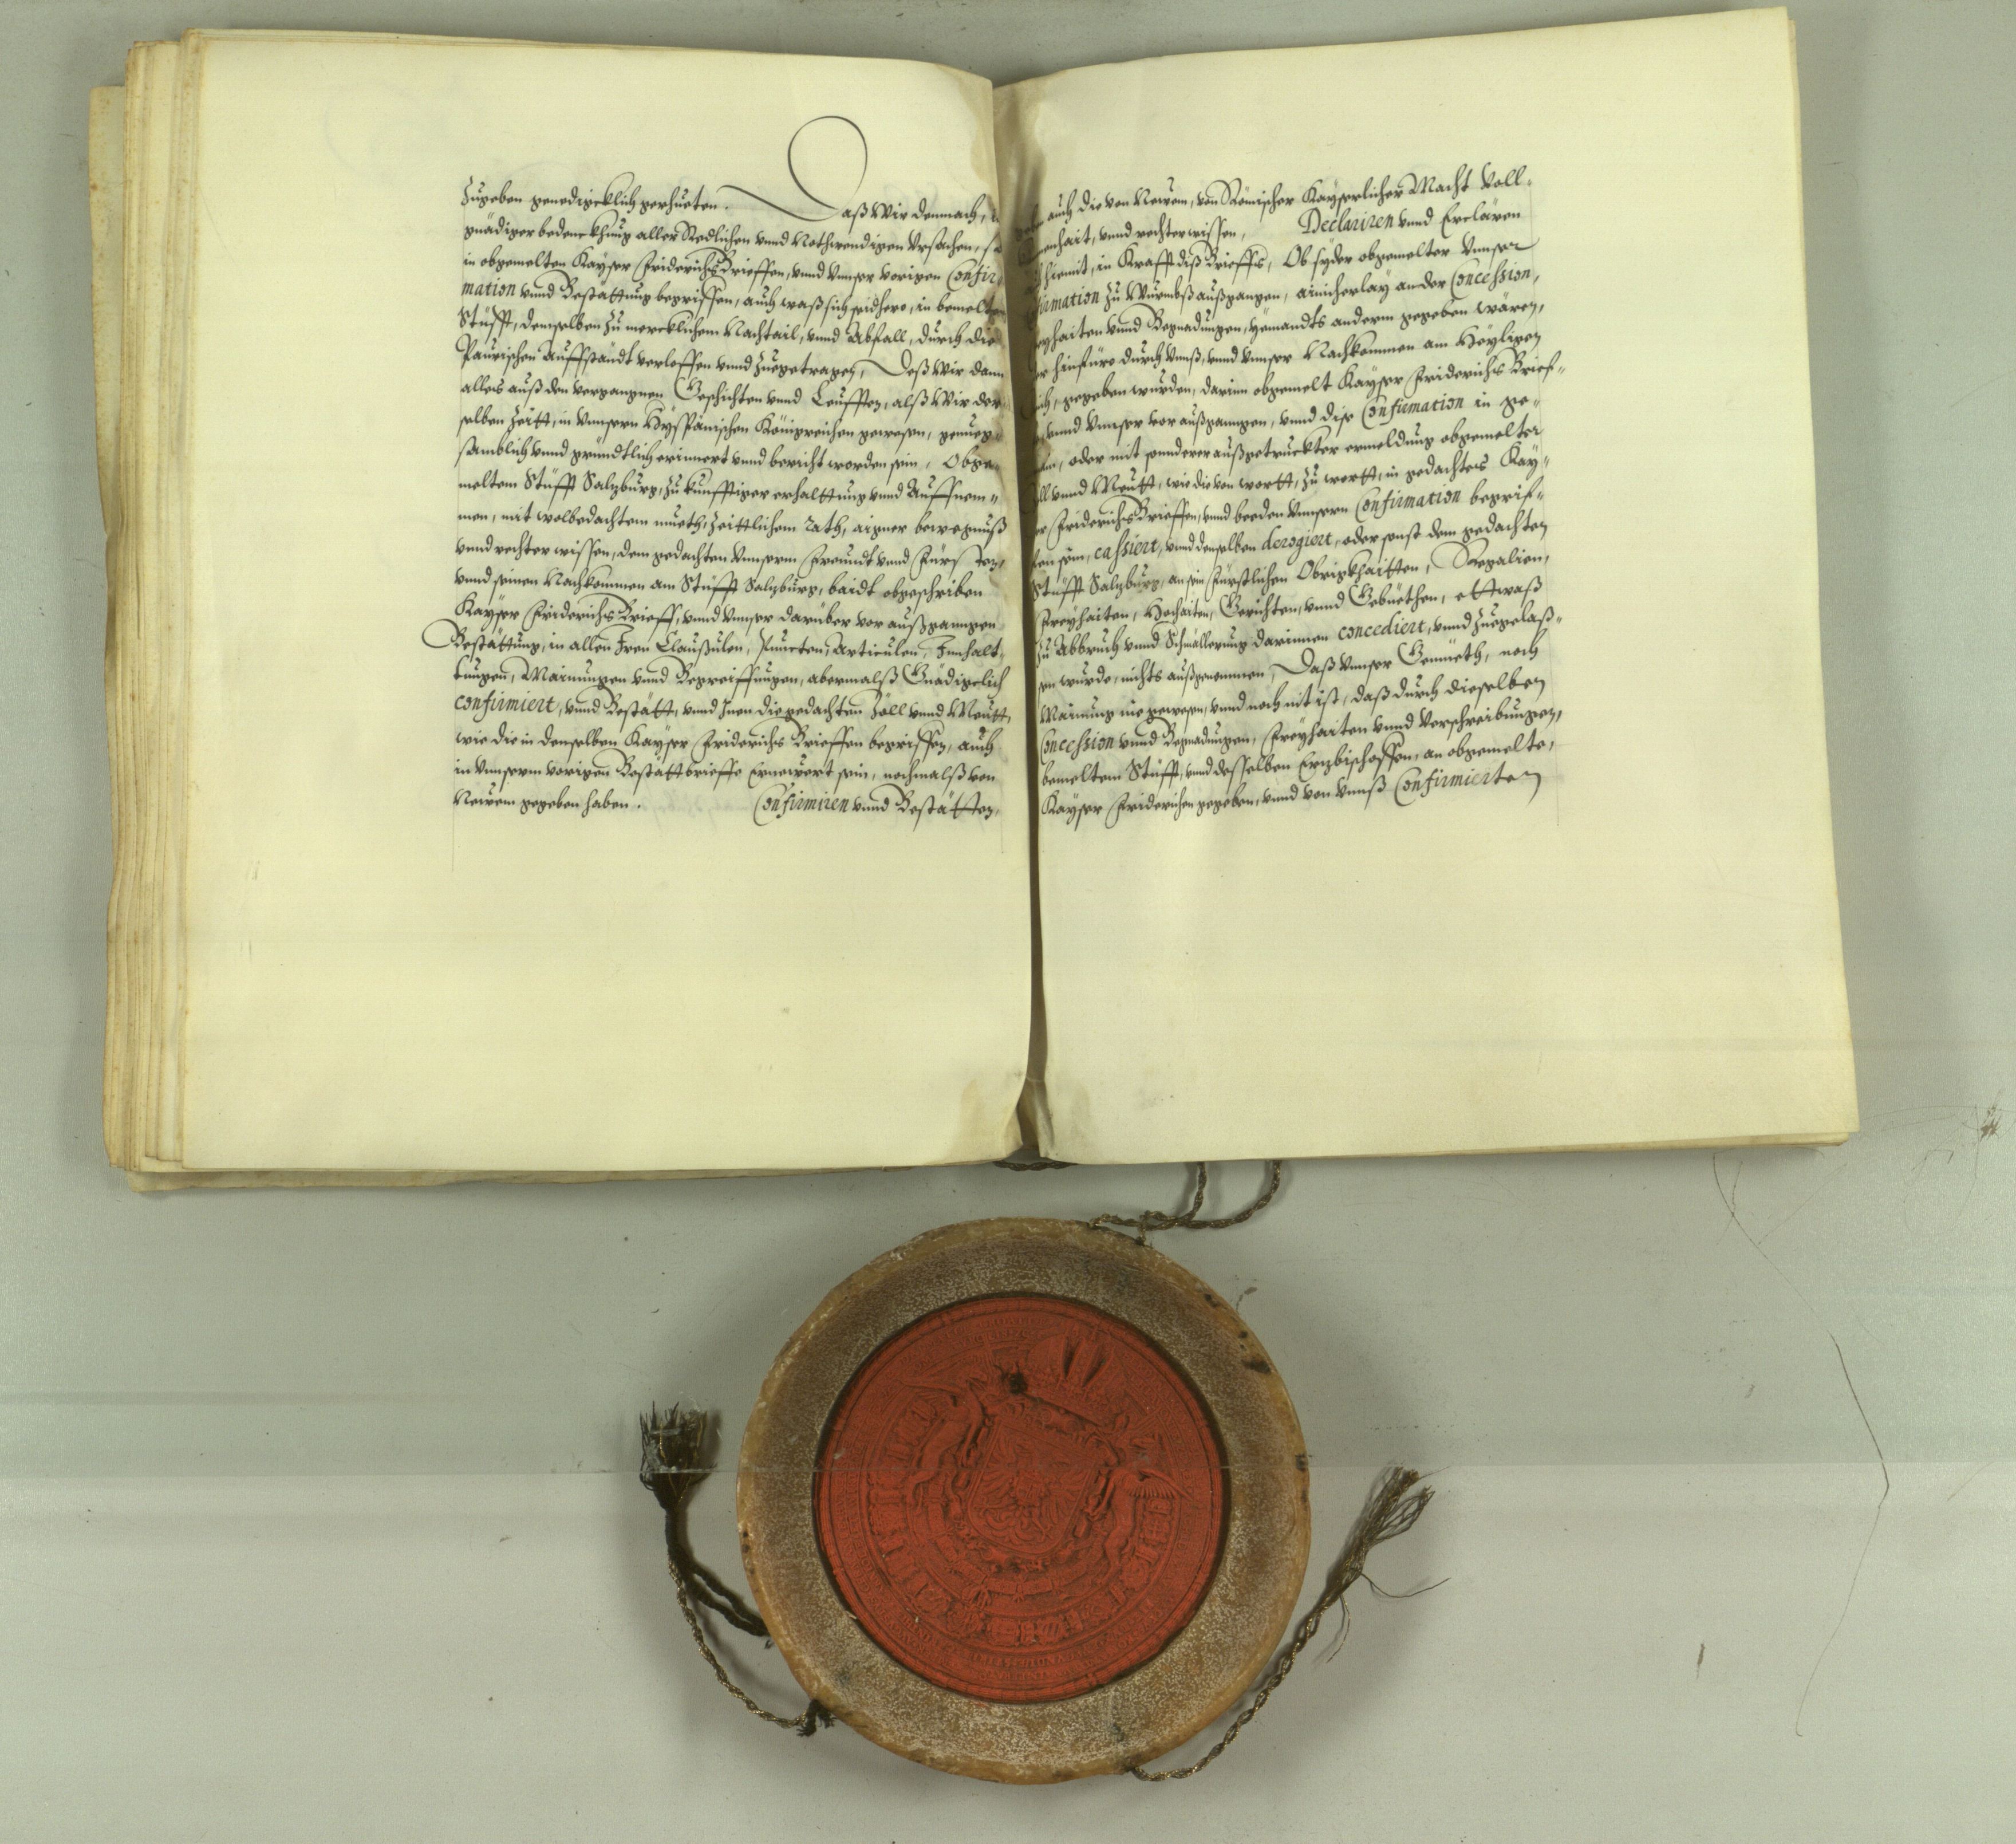 zugeben genedigcklich geruehten. Daß Wir demnach,
gnädiger bedenckhung aller Redlichen vnnd Nothwendigen Vrsachen, so
in obgemelten Kaÿser Friderichs Brieffen, vnnd Vnnser vorigen Confir¬
mation vnnd Bestättung begriffen, auch waß sich seidhero, in bemelten
Stüfft, demselben zu mercklichem Nachtail, vnnd Abfall, durch die
Paurischen Auffständt verloffen vnnd zuegetragen, Deß Wir dann
alles auß den vergangnen Geschichten vnnd Leufften, alß Wir der¬
selben Zeitt, in Vnnsern Hÿspanischen Königreichen gewesen, genueg¬
samblich vnnd gründtlich erinnert vnnd bericht worden sein, Obge¬
meltem Stüfft Salzburg, zu kunfftiger erhalttung vnnd Auffnem¬
men, mit wolbedachtem mueth, zeittlichem rath, aigner bewegnuß
vnnd rechter wissen, dem gedachten Vnnserm Freundt vnnd Fürsten,
vnnd seinen Nachkommen am Stüfft Salzburg, baidt obgeschriben
Kaÿser Friderichs Brieff, vnnd Vnnser darüber vor außgangen
Bestättung, in allen Iren Claußulen, Puncten, Articulen, Innhalt¬
tungen, Mainungen vnnd Begreiffungen, abermalß Gnädigclich
confirmiert, vnnd Bestätt, vnnd Inen die gedachten Zöll vnnd Meutt,
wie die in denselben Kaÿser Friderichs Brieffen begriffen, auch
in Vnnserm vorigen Bestättbrieffe Ernewert sein, nochmalß von
Neuem gegeben haben. Confirmiren vnnd Bestätten,
auch die von Newem, von Römischer Kaÿserlicher Macht Voll¬
menhait, vnnd rechter wissen, Declariren vnnd Erclären
hiemit, in Krafft diß Brieffs, Ob syder obgemelter Vnnser
firmation zu Wurmbß außgangen, ainicherlay ander Concession,
eyhaiten vnnd Begnadungen, ÿemandts anderm gegeben wären,
er hinfüro durch Vnnß, vnnd Vnnser Nachkommen am Heÿligen
ich, gegeben wurden, darinn obgemelt Kaÿser Friderichs Brief¬
vnnd Vnnser vor außgangen, vnnd dise Confirmation in ge¬
oder mit sonnderer außgetruckter ermeldung obgemelter
ll vnnd Meutt, wie die von wortt, zu wortt, in gedachtes Kaÿ¬
er Friderichs Brieffen, vnnd beeden Vnnsern Confirmation begrif¬
fen sein, cassiert, vnnd denselben derogiert, oder sonst dem gedachten
Stüfft Salzburg, an sein Fürstlichen Obrigkhaitten, Regalien,
Freÿhaiten, Hochaiten, Gerichten, vnnd Gebüethen, ettwaß
zu Abbruch vnnd Schmällerung darinnen concediert, vnnd zuegelaß¬
sen wurde, nichts außgenommen, Daß Vnnser Gemüeth, noch
Mainung nie gewesen, vnnd noch nit ist, daß durch dieselben
Concession vnnd Begnadungen, Freÿhaiten vnnd Verschreibungen,
bemeltem Stüfft, vnnd desselben Erzbischoffen, an obgemelte,
Kaÿser Friderichen gegeben, vnnd von Vnnß Confirmierten